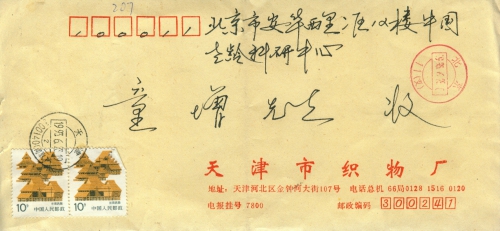 207
北京市安华西里三区18楼中国
老龄科研中心
童增先生 收
天津市织物厂
地址：天津河北区金钟河大街107号 电话总机 66局0128 1516 0120
电报挂号 7800 邮政编码 300241
10分
中国人民邮政
10分
中国人民邮政